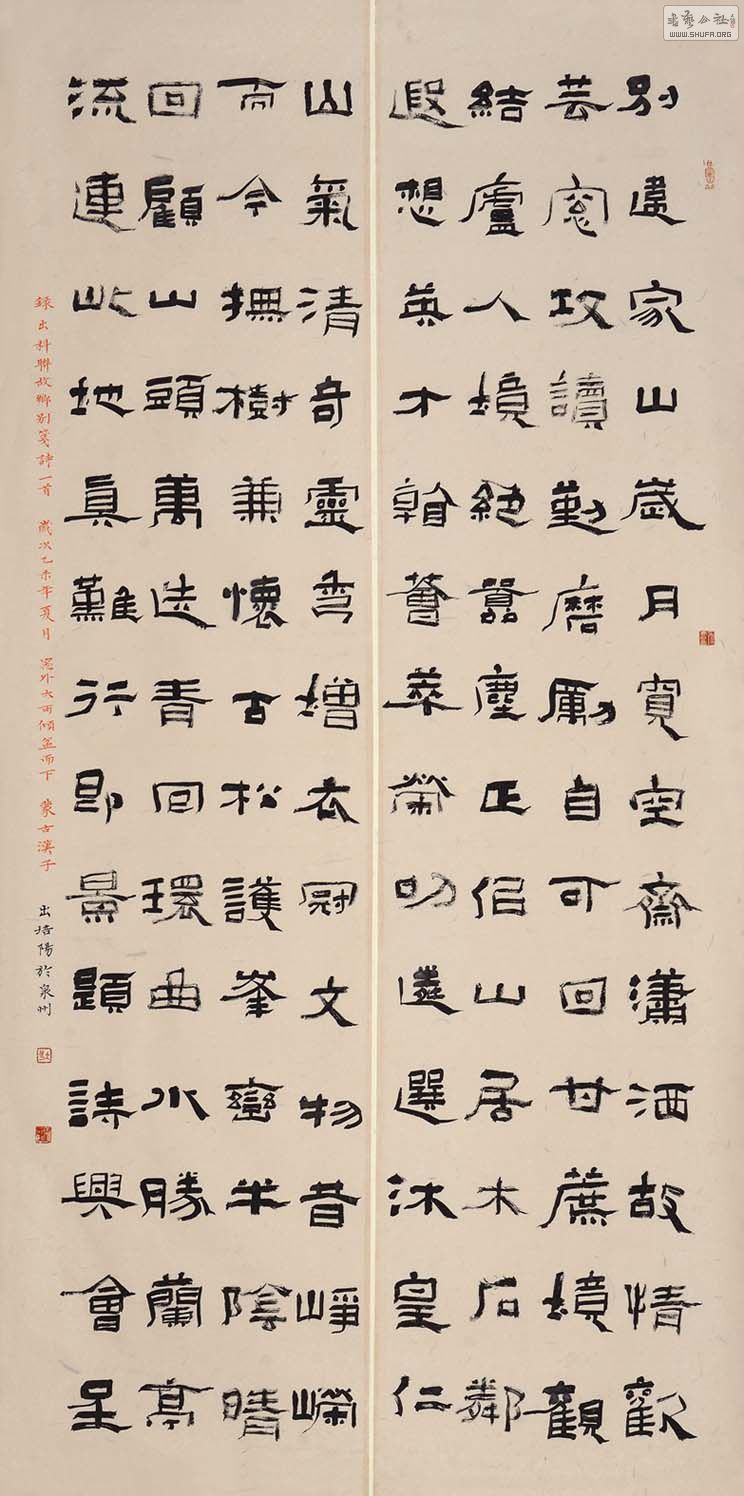 別遠家山歲月寬空齋瀟洒故情歡
芸窗攻讀勤磨厲自可回甘蔗境觀
結廬人境絕囂塵正侶山居木石鄰
遐想英才翰薈萃榮叨遴選沐皇仁
山氣清奇靈秀增衣冠文物昔崢嶸
而今撫樹兼懷古松護峯巒半陰晴
回顧山頭萬迭青回環曲水勝蘭亭
流連此地真難行即景題詩興會呈
錄出科聯故鄉別箋詩一首 歲次乙未年夏月 窗外大雨傾盆而下 蒙古漢子 出培陽於泉州
書藝公社
WWW.SHUFA.ORG